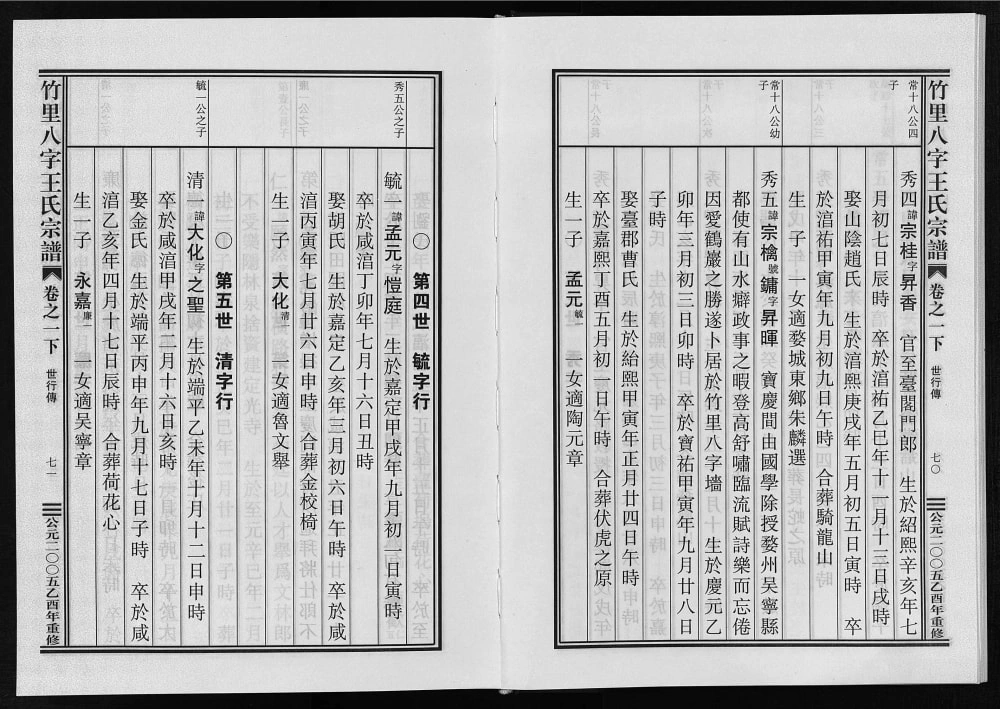 竹里八字王氏宗譜 卷之一下 世行傳 七〇 公元二〇〇五乙酉年重修
常十八公四子
秀四諱宗桂字昇香 官至臺閣門郎 生於紹熙辛亥年七
月初七日辰時 卒於淯祐乙巳年十一月十三日戌時
娶山陰趙氏 生於淯熙庚戌年五月初五日寅時 卒
於淯祐甲寅年九月初九日午時 合葬騎龍山
生一子 一女適婺城東鄉朱麟選
常十八公幼子
秀五諱宗檎號鏞字昇暉 寶慶間由國學除授婺州吴寧縣
都使有山水癖政事之暇登高舒嘯臨流賦詩樂而忘倦
因愛鶴巖之勝遂卜居於竹里八字墻 生於慶元乙
卯年三月初三日卯時 卒於寶祐甲寅年九月廿八日
子時
娶臺郡曹氏 生於紿熙甲寅年正月廿四日午時
卒於嘉熙丁酉五月初一日午時 合葬伏虎之原
生一子 孟元毓一 一女適陶元章
第四世 毓字行
秀五公之子
毓一諱孟元字愷庭 生於嘉定甲戌年九月初一日寅時
卒於咸淯丁卯年七月十六日丑時
娶胡氏 生於嘉定乙亥年三月初六日午時 卒於咸
淯丙寅年七月廿六日申時 合葬金校椅
生一子 大化清一 一女適魯文舉
第五世 清字行
毓一公之子
清一諱大化字之聖 生於端平乙未年十月十二日申時
卒於咸淯甲戌年二月十六日亥時
娶金氏 生於端平丙申年九月十七日子時 卒於咸
淯乙亥年四月十七日辰時 合葬荷花心
生一子 永嘉廉一 一女適吴寧章
竹里八字王氏宗譜 卷之一下 世行傳 七一 公元二〇〇五乙酉年重修